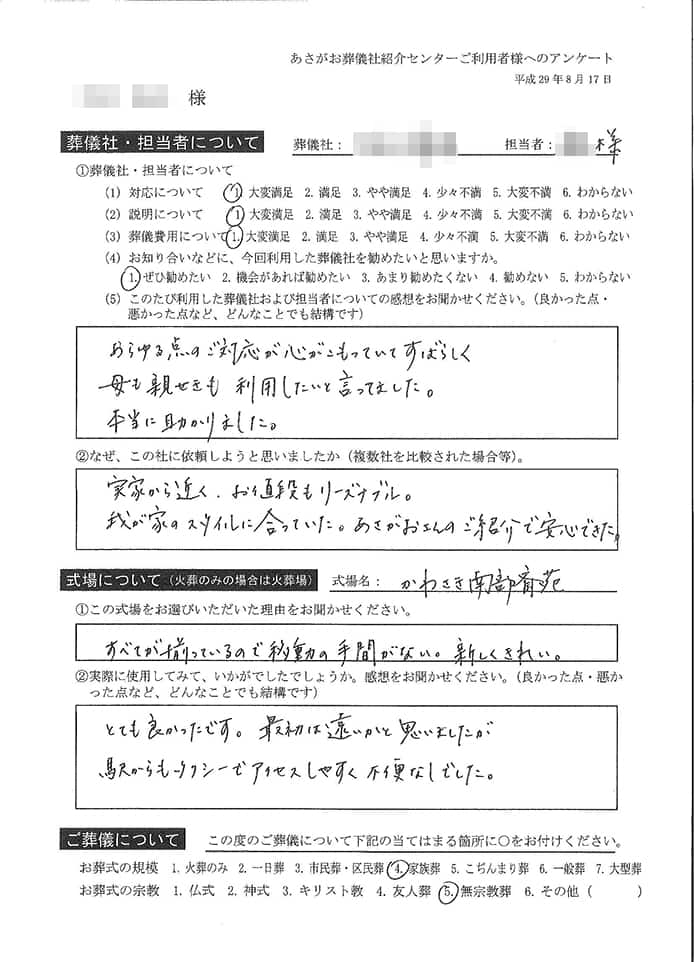 あさがお葬儀社紹介センターご利用者様へのアンケート
平成29年8月17日
様
葬儀社・担当者について 葬儀社： 担当者： 様
①葬儀社・担当者について
(1) 対応について 1. 大変満足 2. 満足 3. やや満足 4. 少々不満 5. 大変不満 6. わからない
(2) 説明について 1. 大変満足 2. 満足 3. やや満足 4. 少々不満 5. 大変不満 6. わからない
(3) 葬儀費用について 1. 大変満足 2. 満足 3. やや満足 4. 少々不満 5. 大変不満 6. わからない
(4) お知り合いなどに、今回利用した葬儀社を勧めたいと思いますか。
1. ぜひ勧めたい 2. 機会があれば勧めたい 3. あまり勧めたくない 4. 勧めない 5. わからない
(5) このたび利用した葬儀社および担当者についての感想をお聞かせください。（良かった点・
悪かった点など、どんなことでも結構です）
あらゆる点のご対応が心がこもっていてすばらしく
母も親せきも利用したいと言ってました。
本当に助かりました。
②なぜ、この社に依頼しようと思いましたか（複数社を比較された場合等）。
実家から近く、お値段もリーズナブル。
我が家のスタイルに合っていた。あさがおさんのご紹介で安心できた。
式場について（火葬のみの場合は火葬場） 式場名： かわさき南部斎苑
①この式場をお選びいただいた理由をお聞かせください。
すべてが揃っているので移動の手間がない。新しくきれい。
②実際に使用してみて、いかがでしたでしょうか。感想をお聞かせください。（良かった点・悪か
った点など、どんなことでも結構です）
とても良かったです。最初は遠いかと思いましたが
駅からもタクシーでアクセスしやすく不便なしでした。
ご葬儀について この度のご葬儀について下記の当てはまる箇所に○をお付けください。
お葬式の規模 1. 火葬のみ 2. 一日葬 3. 市民葬・区民葬 4. 家族葬 5. こぢんまり葬 6. 一般葬 7. 大型葬
お葬式の宗教 1. 仏式 2. 神式 3. キリスト教 4. 友人葬 5. 無宗教葬 6. その他（ ）